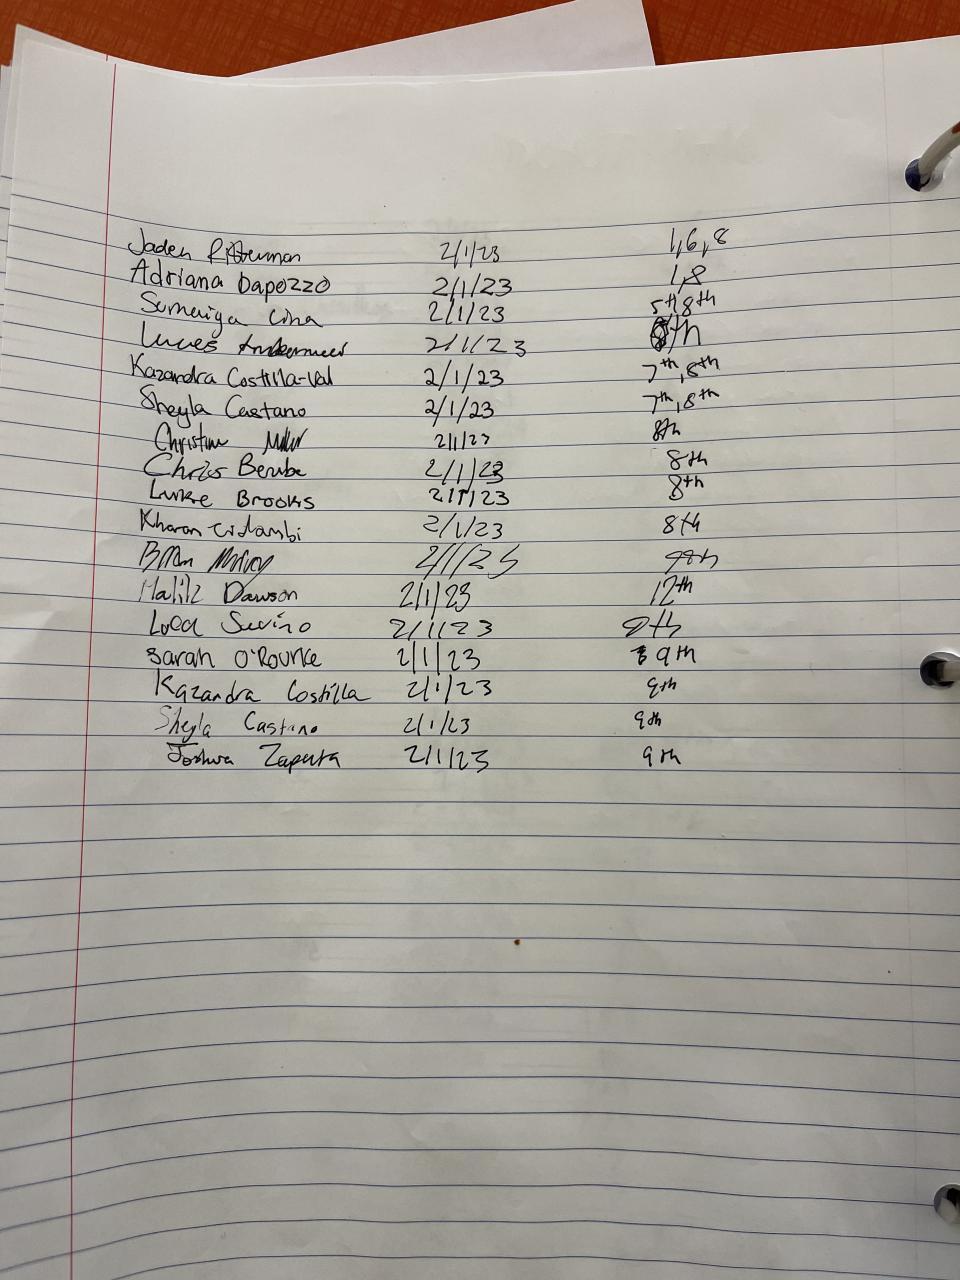 Jaden Ritterman 2/1/23 1,6,8
Adriana Dapozzo 2/1/23 1,8
Sumaiya 2/1/23 5th 8th
Lucas 2/1/23 8th
Kazandra Costilla-Val 2/1/23 7th,8th
Sheyla Castano 2/1/23 7th,8th
Christine Miller 2/1/23 8th
Chris Berube 2/1/23 8th
Luke Brooks 2/1/23 8th
Kharan 2/1/23 8th
2/1/23
Dawson 2/1/23 12th
2/1/23
Sarah O'Rourke 2/1/23 9th
Kazandra Costilla 2/1/23 9th
Sheyla Castano 2/1/23 9th
Joshua Zapata 2/1/23 9th